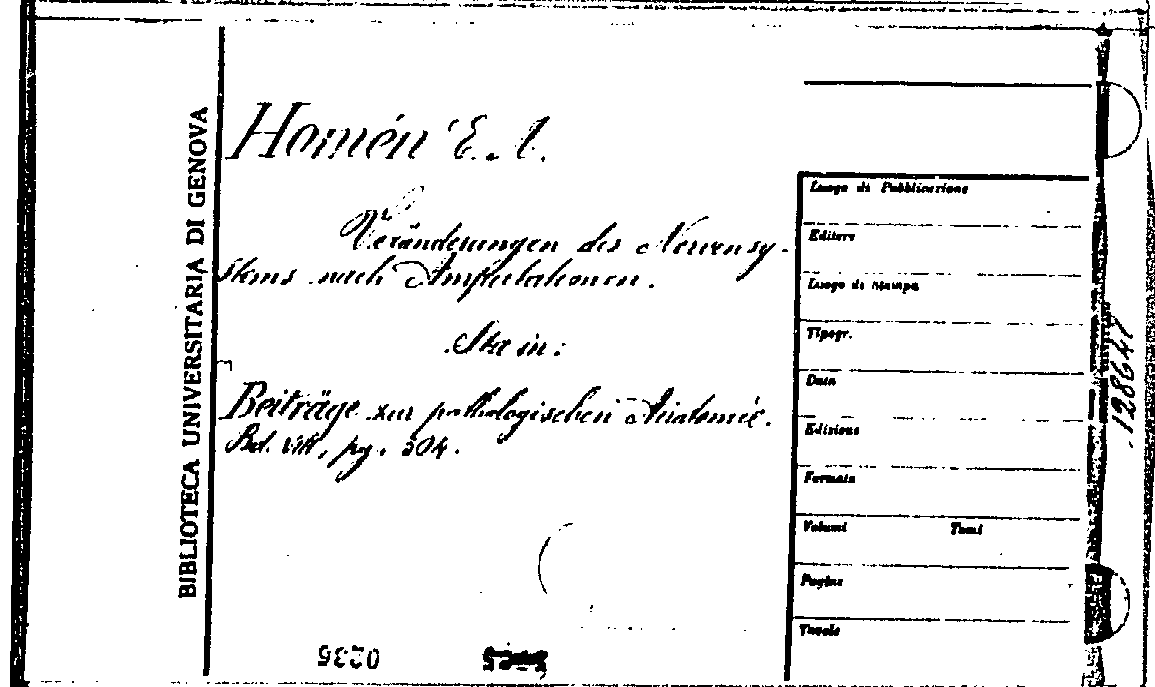 BIBLIOTECA UNIVERSITARIA DI GENOVA
Homén E. A.
Veränderungen des Nervensy-
stems nach Amputationen.
Sta in:
Beiträge zur pathologischen Anatomie.
Bd. VIII, pg. 304.
Luogo di Pubblicazione
Editore
Luogo di stampa
Tipogr.
Data
Edizione
Formato
Volumi Tomi
Pagine
Tavole
128647
0235